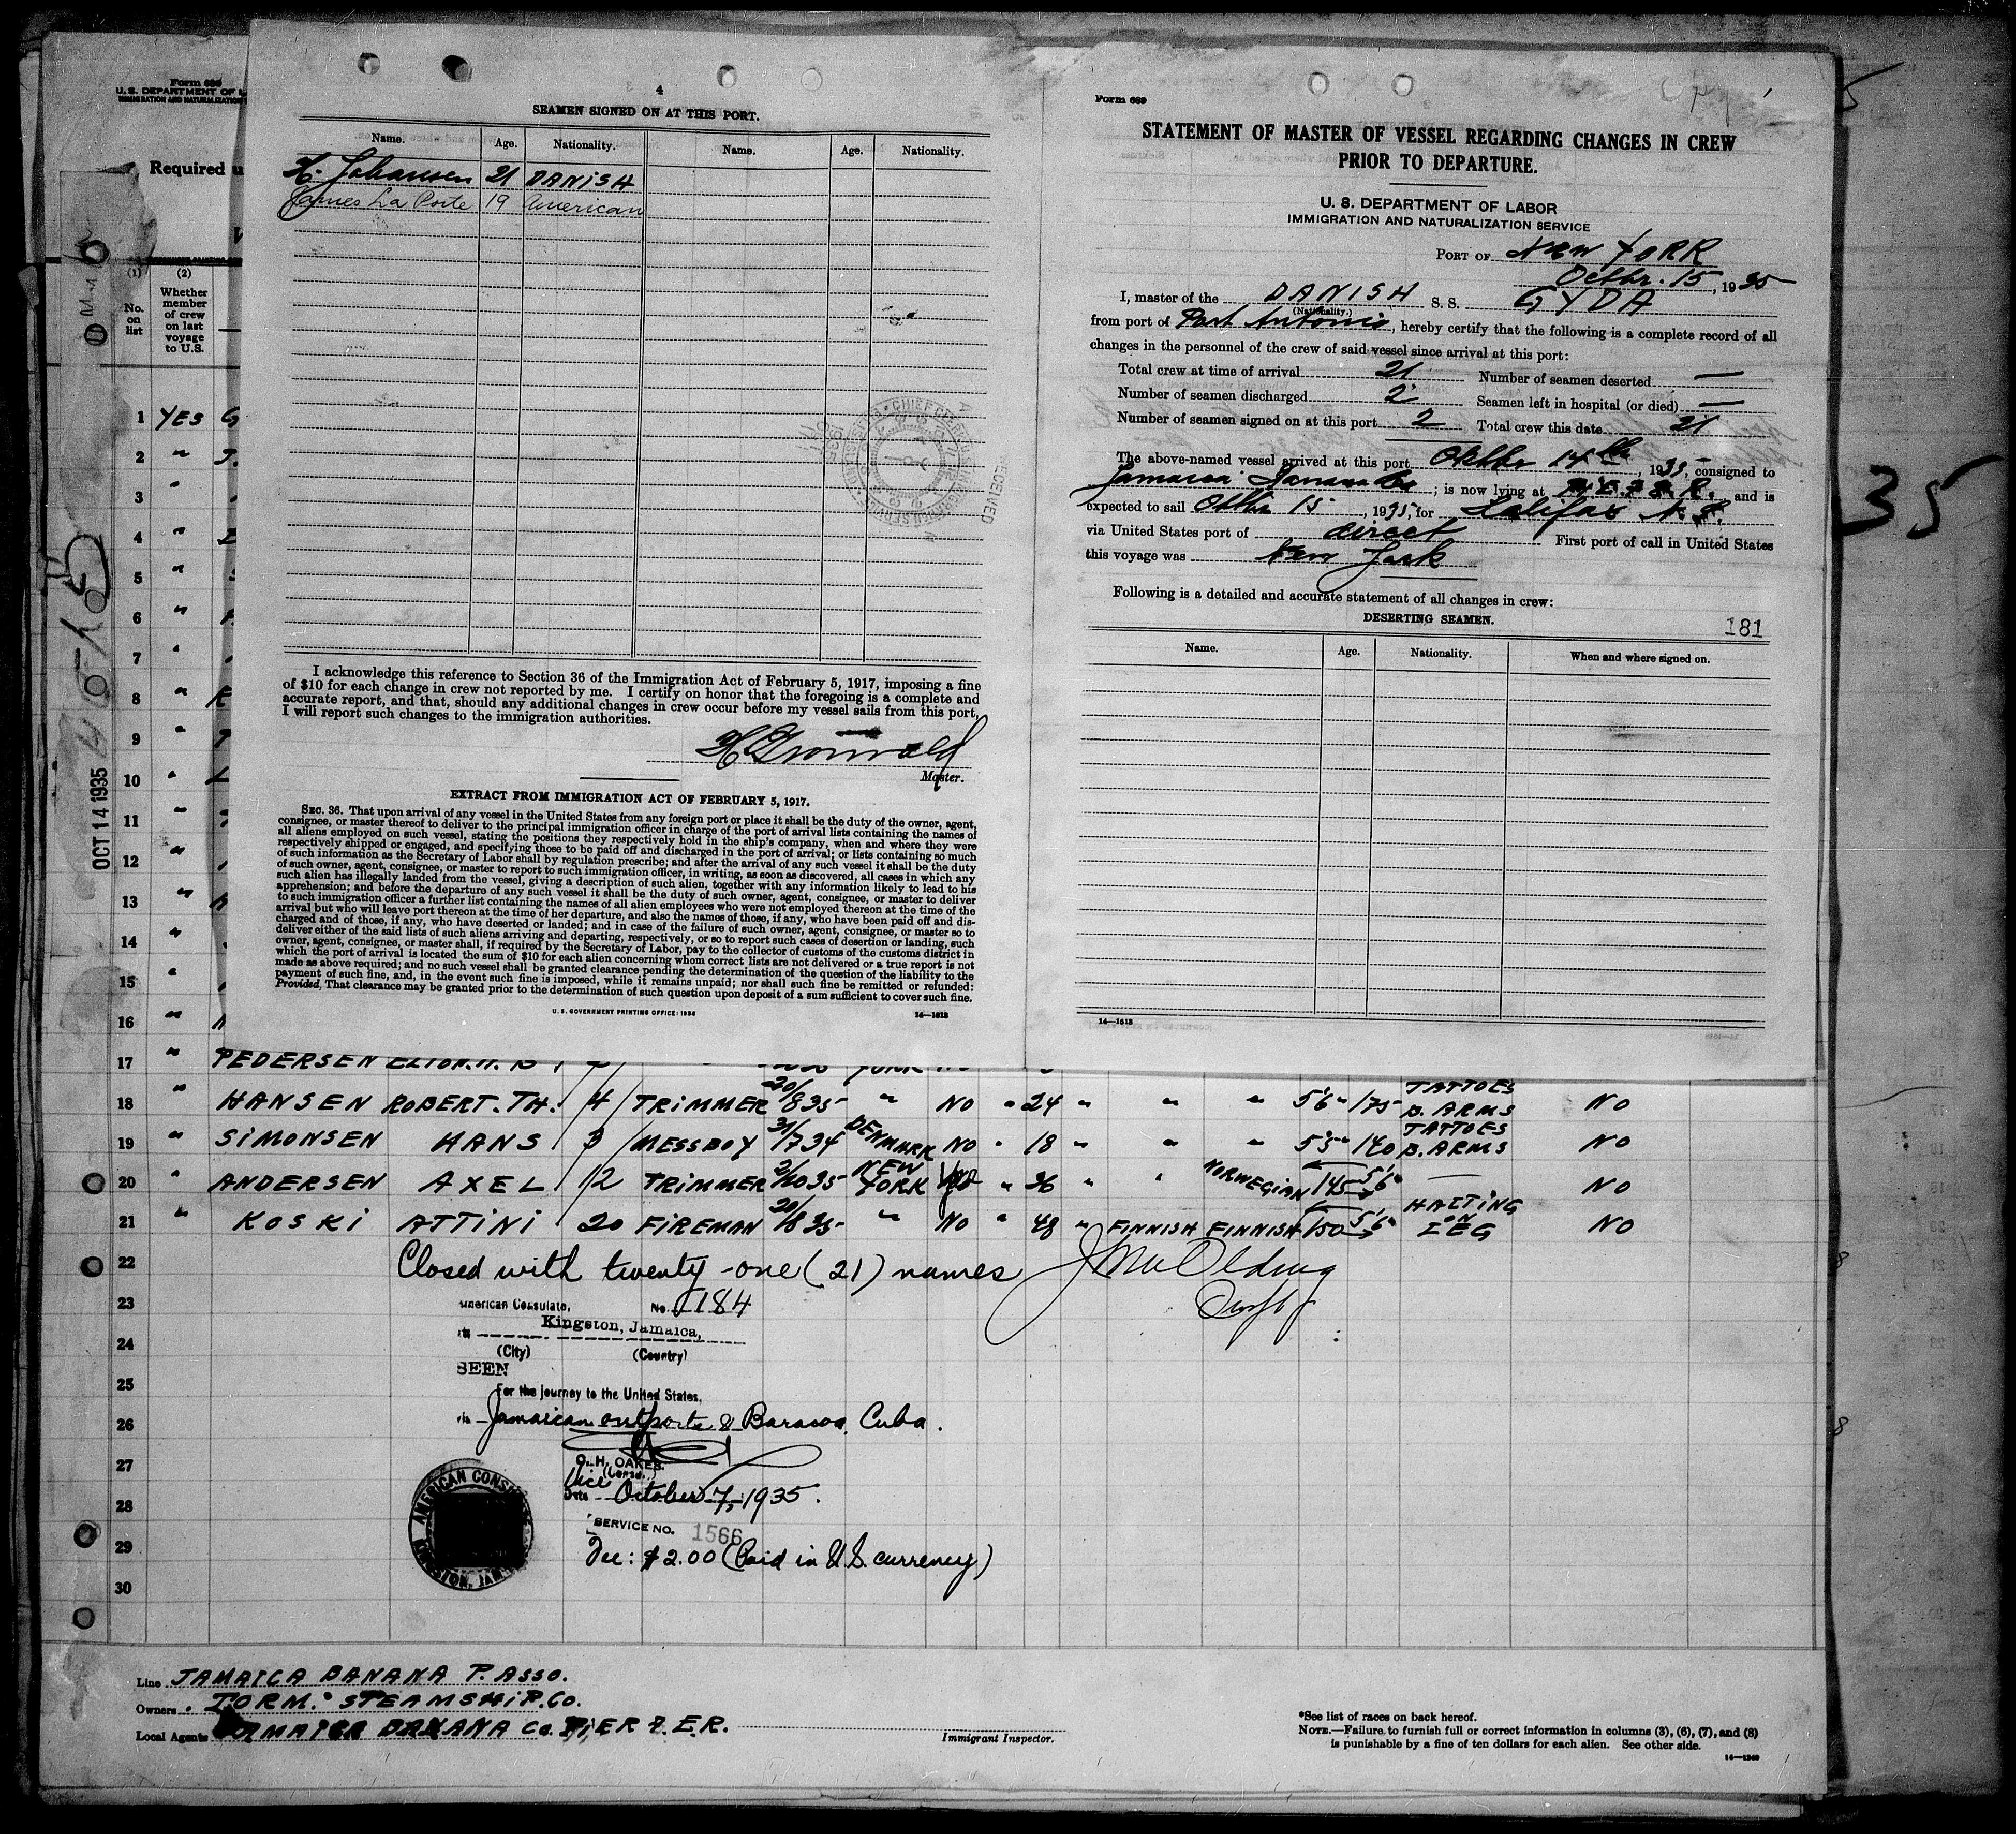 Form 689
U. S. DEPARTMENT OF L
IMMIGRATION AND NATURALIZATION
Required u
(1)
No. on list
(2)
Whether member of crew on last voyage to U.S.
OCT 14 1935
1 YES G
2 "
3 "
4 "
5 "
6 "
7 "
8 "
9 "
10 "
11 "
12 "
13 "
14 "
15 "
16 "
4
SEAMEN SIGNED ON AT THIS PORT.
Name. Age. Nationality. Name. Age. Nationality.
H. Johansen 21 DANISH
James La Porte 19 American
I acknowledge this reference to Section 36 of the Immigration Act of February 5, 1917, imposing a fine
of $10 for each change in crew not reported by me. I certify on honor that the foregoing is a complete and
accurate report, and that, should any additional changes in crew occur before my vessel sails from this port,
I will report such changes to the immigration authorities.
Master.
EXTRACT FROM IMMIGRATION ACT OF FEBRUARY 5, 1917.
SEC. 36. That upon arrival of any vessel in the United States from any foreign port or place it shall be the duty of the owner, agent,
consignee, or master thereof to deliver to the principal immigration officer in charge of the port of arrival lists containing the names of
all aliens employed on such vessel, stating the positions they respectively hold in the ship's company, when and where they were
respectively shipped or engaged, and specifying those to be paid off and discharged in the port of arrival; or lists containing so much
of such information as the Secretary of Labor shall by regulation prescribe; and after the arrival of any such vessel it shall be the duty
of such owner, agent, consignee, or master to report to such immigration officer, in writing, as soon as discovered, all cases in which any
such alien has illegally landed from the vessel, giving a description of such alien, together with any information likely to lead to his
apprehension; and before the departure of any such vessel it shall be the duty of such owner, agent, consignee, or master to deliver
to such immigration officer a further list containing the names of all alien employees who were not employed thereon at the time of the
arrival but who will leave port thereon at the time of her departure, and also the names of those, if any, who have been paid off and dis-
charged and of those, if any, who have deserted or landed; and in case of the failure of such owner, agent, consignee, or master so to
deliver either of the said lists of such aliens arriving and departing, respectively, or so to report such cases of desertion or landing, such
owner, agent, consignee, or master shall, if required by the Secretary of Labor, pay to the collector of customs of the customs district in
which the port of arrival is located the sum of $10 for each alien concerning whom correct lists are not delivered or a true report is not
made as above required; and no such vessel shall be granted clearance pending the determination of the question of the liability to the
payment of such fine, and, in the event such fine is imposed, while it remains unpaid; nor shall such fine be remitted or refunded:
Provided, That clearance may be granted prior to the determination of such question upon deposit of a sum sufficient to cover such fine.
U. S. GOVERNMENT PRINTING OFFICE: 1934 14—1613
Form 689
STATEMENT OF MASTER OF VESSEL REGARDING CHANGES IN CREW
PRIOR TO DEPARTURE.
U. S. DEPARTMENT OF LABOR
IMMIGRATION AND NATURALIZATION SERVICE
PORT OF NEW YORK
Octbr. 15, 1935
I, master of the DANISH S. S. GYDA
(Nationality.)
from port of Port Antonio, hereby certify that the following is a complete record of all
changes in the personnel of the crew of said vessel since arrival at this port:
Total crew at time of arrival 21 Number of seamen deserted —
Number of seamen discharged 2 Seamen left in hospital (or died) —
Number of seamen signed on at this port 2 Total crew this date 21
The above-named vessel arrived at this port Oktbr 14th, 1935, consigned to
Jamaica Banana Co; is now lying at and is
expected to sail Oktbr 15, 1935, for Halifax N. S.
via United States port of direct First port of call in United States
this voyage was New York
Following is a detailed and accurate statement of all changes in crew:
DESERTING SEAMEN.
181
Name. Age. Nationality. When and where signed on.
14—1613
35
17 " PEDERSEN
18 " HANSEN ROBERT. TH. 4 TRIMMER 20/8 35 " NO " 24 " " " 5'6" 175 TATTOES B. ARMS NO
19 " SIMONSEN HANS 3 MESSBOY 31/7 34 DENMARK NO " 18 " " " 5'5" 140 TATTOES B. ARMS NO
20 " ANDERSEN AXEL 12 TRIMMER 2/10 35 NEW YORK " 36 " " NORWEGIAN 145 5'6" — NO
21 " KOSKI ATTINI 20 FIREMAN 20/8 35 " NO " 48 " FINNISH FINNISH 150 5'6" HALTING ON LEG NO
22 Closed with twenty-one (21) names
23 American Consulate, No. 184
Kingston, Jamaica,
24 (City) (Country)
SEEN
25 For the journey to the United States,
26 via Jamaican outports & Baracoa, Cuba.
27 O. H. OAKES
Vice (Consul)
28 Date October 7, 1935.
SERVICE NO. 1566
29 Fee: $2.00 (Paid in U.S. currency)
30
AMERICAN CONSULATE KINGSTON, JAM
Line JAMAICA BANANA P. ASSO.
Owners TORM. STEAMSHIP. Co.
Local Agents JAMAICA BANANA Co. PIER 7. E.R.
Immigrant Inspector.
*See list of races on back hereof.
NOTE.—Failure to furnish full or correct information in columns (3), (6), (7), and (8)
is punishable by a fine of ten dollars for each alien. See other side.
14—1240